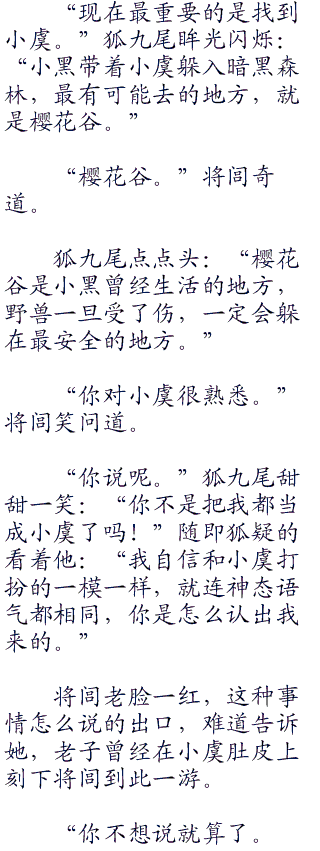 “现在最重要的是找到
小虞。”狐九尾眸光闪烁：
“小黑带着小虞躲入暗黑森
林，最有可能去的地方，就
是樱花谷。”
“樱花谷。”将闾奇
道。
狐九尾点点头：“樱花
谷是小黑曾经生活的地方，
野兽一旦受了伤，一定会躲
在最安全的地方。”
“你对小虞很熟悉。”
将闾笑问道。
“你说呢。”狐九尾甜
甜一笑：“你不是把我都当
成小虞了吗！”随即狐疑的
看着他：“我自信和小虞打
扮的一模一样，就连神态语
气都相同，你是怎么认出我
来的。”
将闾老脸一红，这种事
情怎么说的出口，难道告诉
她，老子曾经在小虞肚皮上
刻下将闾到此一游。
“你不想说就算了。